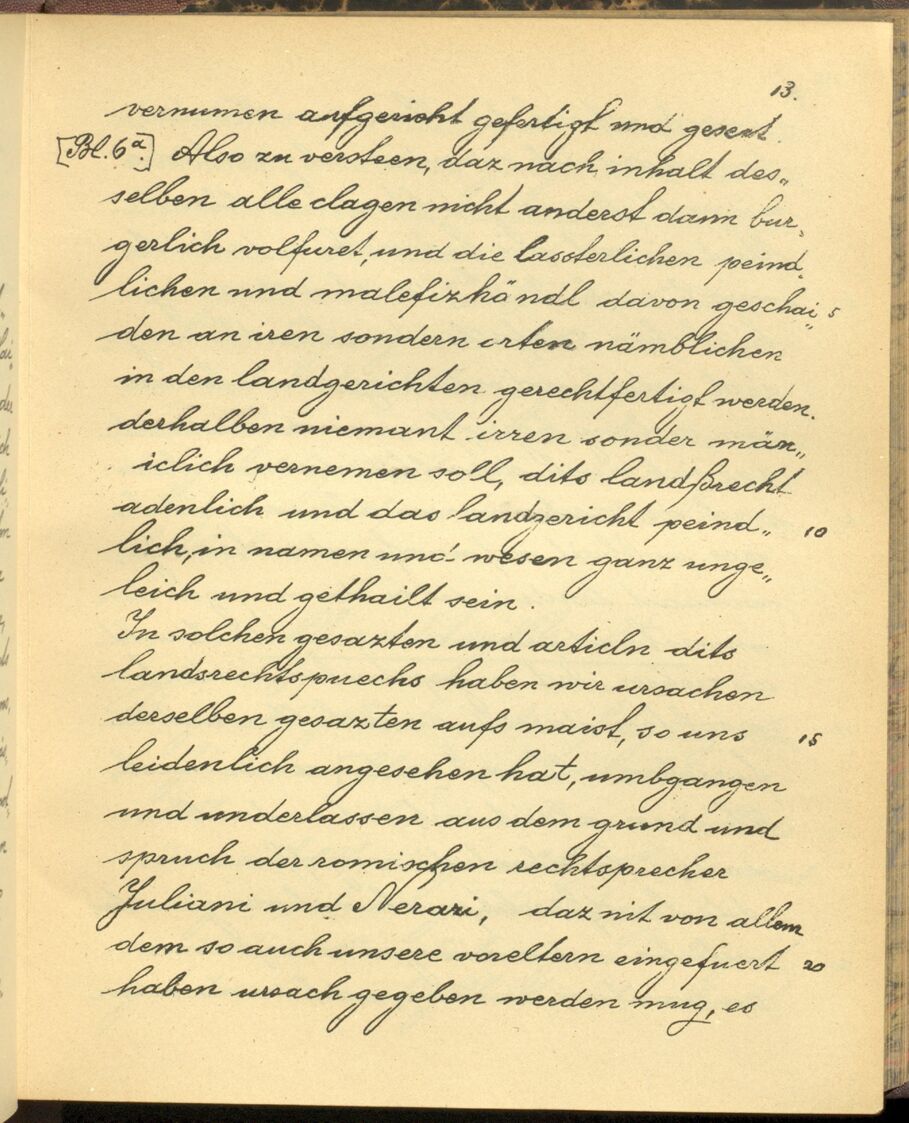 13.
vernumen aufgericht gefertigt und gesent.
[Bl. 6a.] Also zu versteen, daz nach inhalt des„
selben alle clagen nicht anderst dann bur„
gerlich volfuret, und die lassterlichen peind„
lichen und malefizhändl davon geschai„ 5
den an iren sondern orten nämblichen
in den landgerichten gerechtfertigt werden.
derhalben niemant irren sonder män„
iclich vernemen soll, dits landßrecht
adenlich und das landgericht peind„ 10
lich, in namen und wesen ganz unge„
leich und gethailt sein.
In solchen gesazten und articln dits
landsrechtspuechs haben wir ursachen
derselben gesazten aufs maist, so uns 15
leidenlich angesehen hat, umbgangen
und underlassen aus dem grund und
spruch der romischen rechtsprecher
Juliani und Nerazi, daz nit von allem
dem so auch unsere voreltern eingefuert 20
haben ursach gegeben werden mug, es